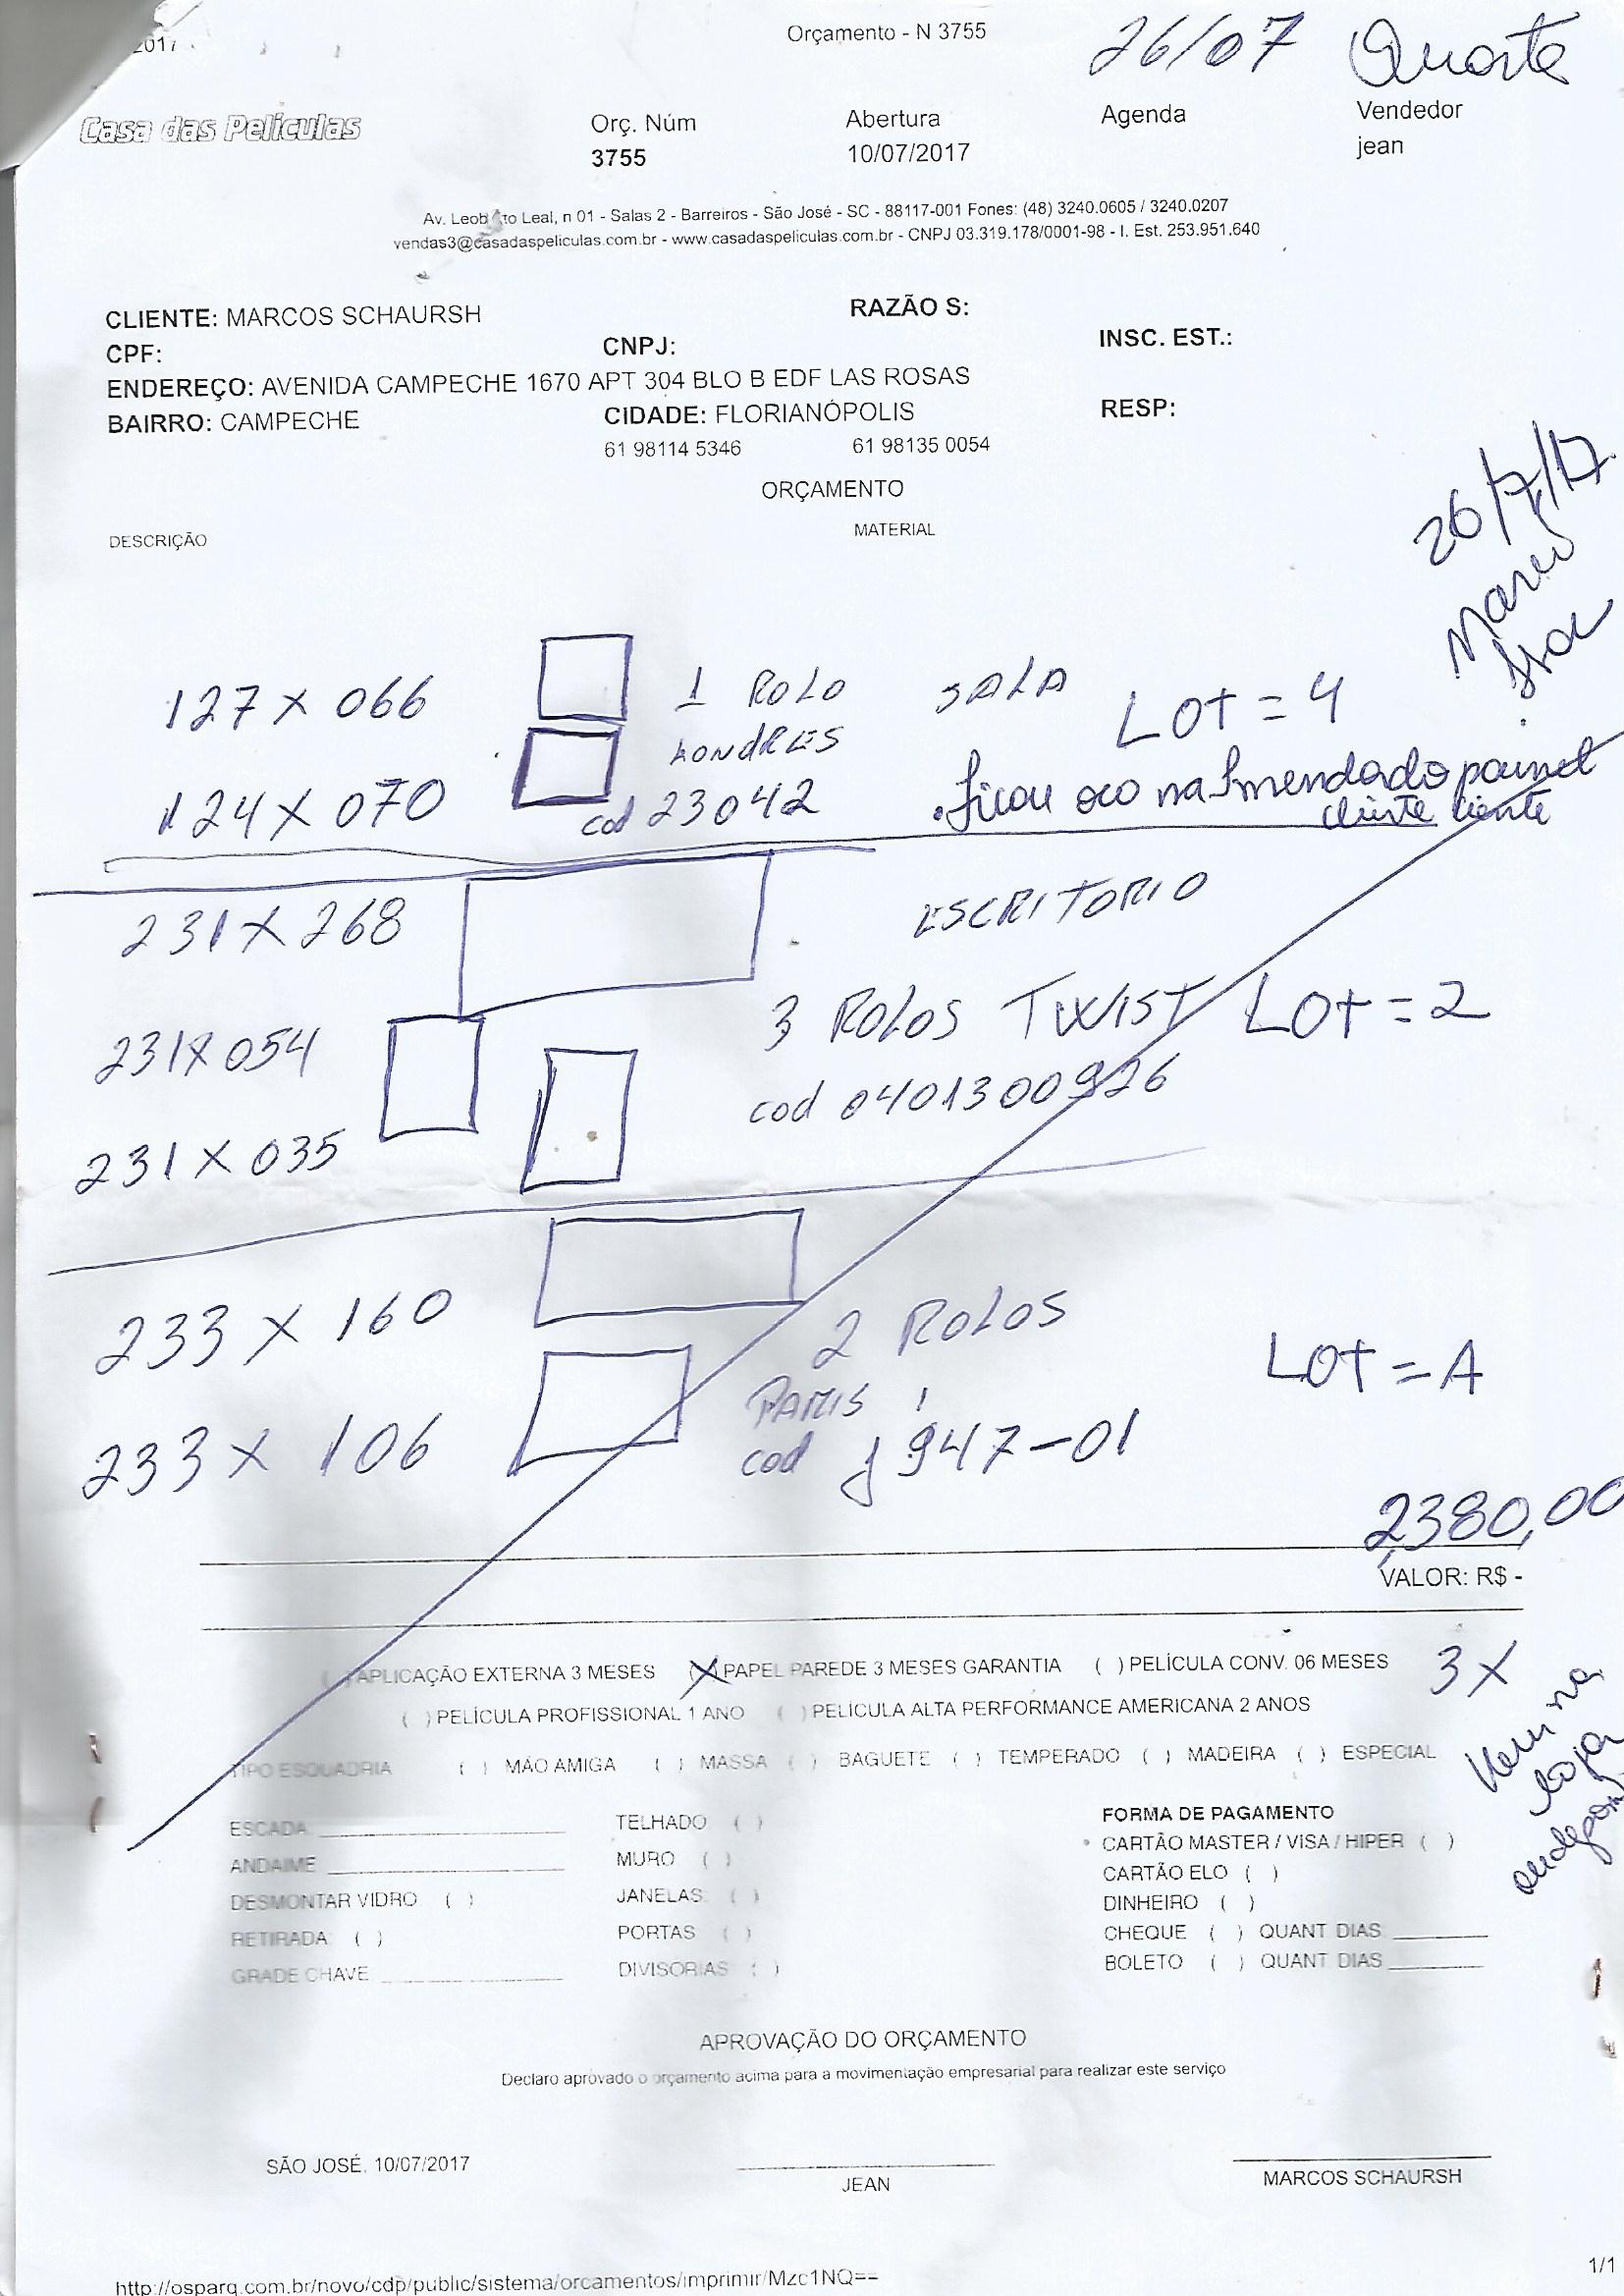 2017
Orçamento - N 3755
26/07 Quarta
Casa das Películas
Orç. Núm
3755
Abertura
10/07/2017
Agenda
Vendedor
jean
Av. Leob to Leal, n 01 - Salas 2 - Barreiros - São José - SC - 88117-001 Fones: (48) 3240.0605 / 3240.0207
vendas3@casadaspeliculas.com.br - www.casadaspeliculas.com.br - CNPJ 03.319.178/0001-98 - I. Est. 253.951.640
CLIENTE: MARCOS SCHAURSH
RAZÃO S:
CPF:
CNPJ:
INSC. EST.:
ENDEREÇO: AVENIDA CAMPECHE 1670 APT 304 BLO B EDF LAS ROSAS
BAIRRO: CAMPECHE
CIDADE: FLORIANÓPOLIS
RESP:
61 98114 5346
61 98135 0054
ORÇAMENTO
DESCRIÇÃO
MATERIAL
26/7/17
127 X 066
1 ROLO SALA LOT = 4
LONDRES
124 X 070
cod 23042
. ficou oco na Emenda do painel
cliente ciente
231 X 268
ESCRITORIO
231X054
3 ROLOS TWIST LOT = 2
cod 0401300926
231 X 035
233 X 160
2 ROLOS
LOT = A
PARIS
233 X 106
cod J 947-01
2380,00
VALOR: R$ -
( ) APLICAÇÃO EXTERNA 3 MESES (X) PAPEL PAREDE 3 MESES GARANTIA ( ) PELÍCULA CONV. 06 MESES
3X
( ) PELÍCULA PROFISSIONAL 1 ANO ( ) PELÍCULA ALTA PERFORMANCE AMERICANA 2 ANOS
TIPO ESQUADRIA ( ) MÃO AMIGA ( ) MASSA ( ) BAGUETE ( ) TEMPERADO ( ) MADEIRA ( ) ESPECIAL
Vem na
loja
ESCADA
ANDAIME
DESMONTAR VIDRO ( )
RETIRADA ( )
GRADE CHAVE
TELHADO ( )
MURO ( )
JANELAS ( )
PORTAS ( )
DIVISORIAS ( )
FORMA DE PAGAMENTO
CARTÃO MASTER / VISA / HIPER ( )
CARTÃO ELO ( )
DINHEIRO ( )
CHEQUE ( ) QUANT DIAS
BOLETO ( ) QUANT DIAS
APROVAÇÃO DO ORÇAMENTO
Declaro aprovado o orçamento acima para a movimentação empresarial para realizar este serviço
SÃO JOSÉ, 10/07/2017
JEAN
MARCOS SCHAURSH
http://osparq.com.br/novo/cdp/public/sistema/orcamentos/imprimir/Mzc1NQ==
1/1